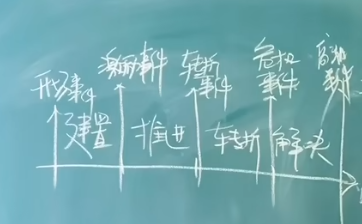 开场事件
激励事件
转折
事件
危机
事件
高潮
事件
建置
推进
转折
解决